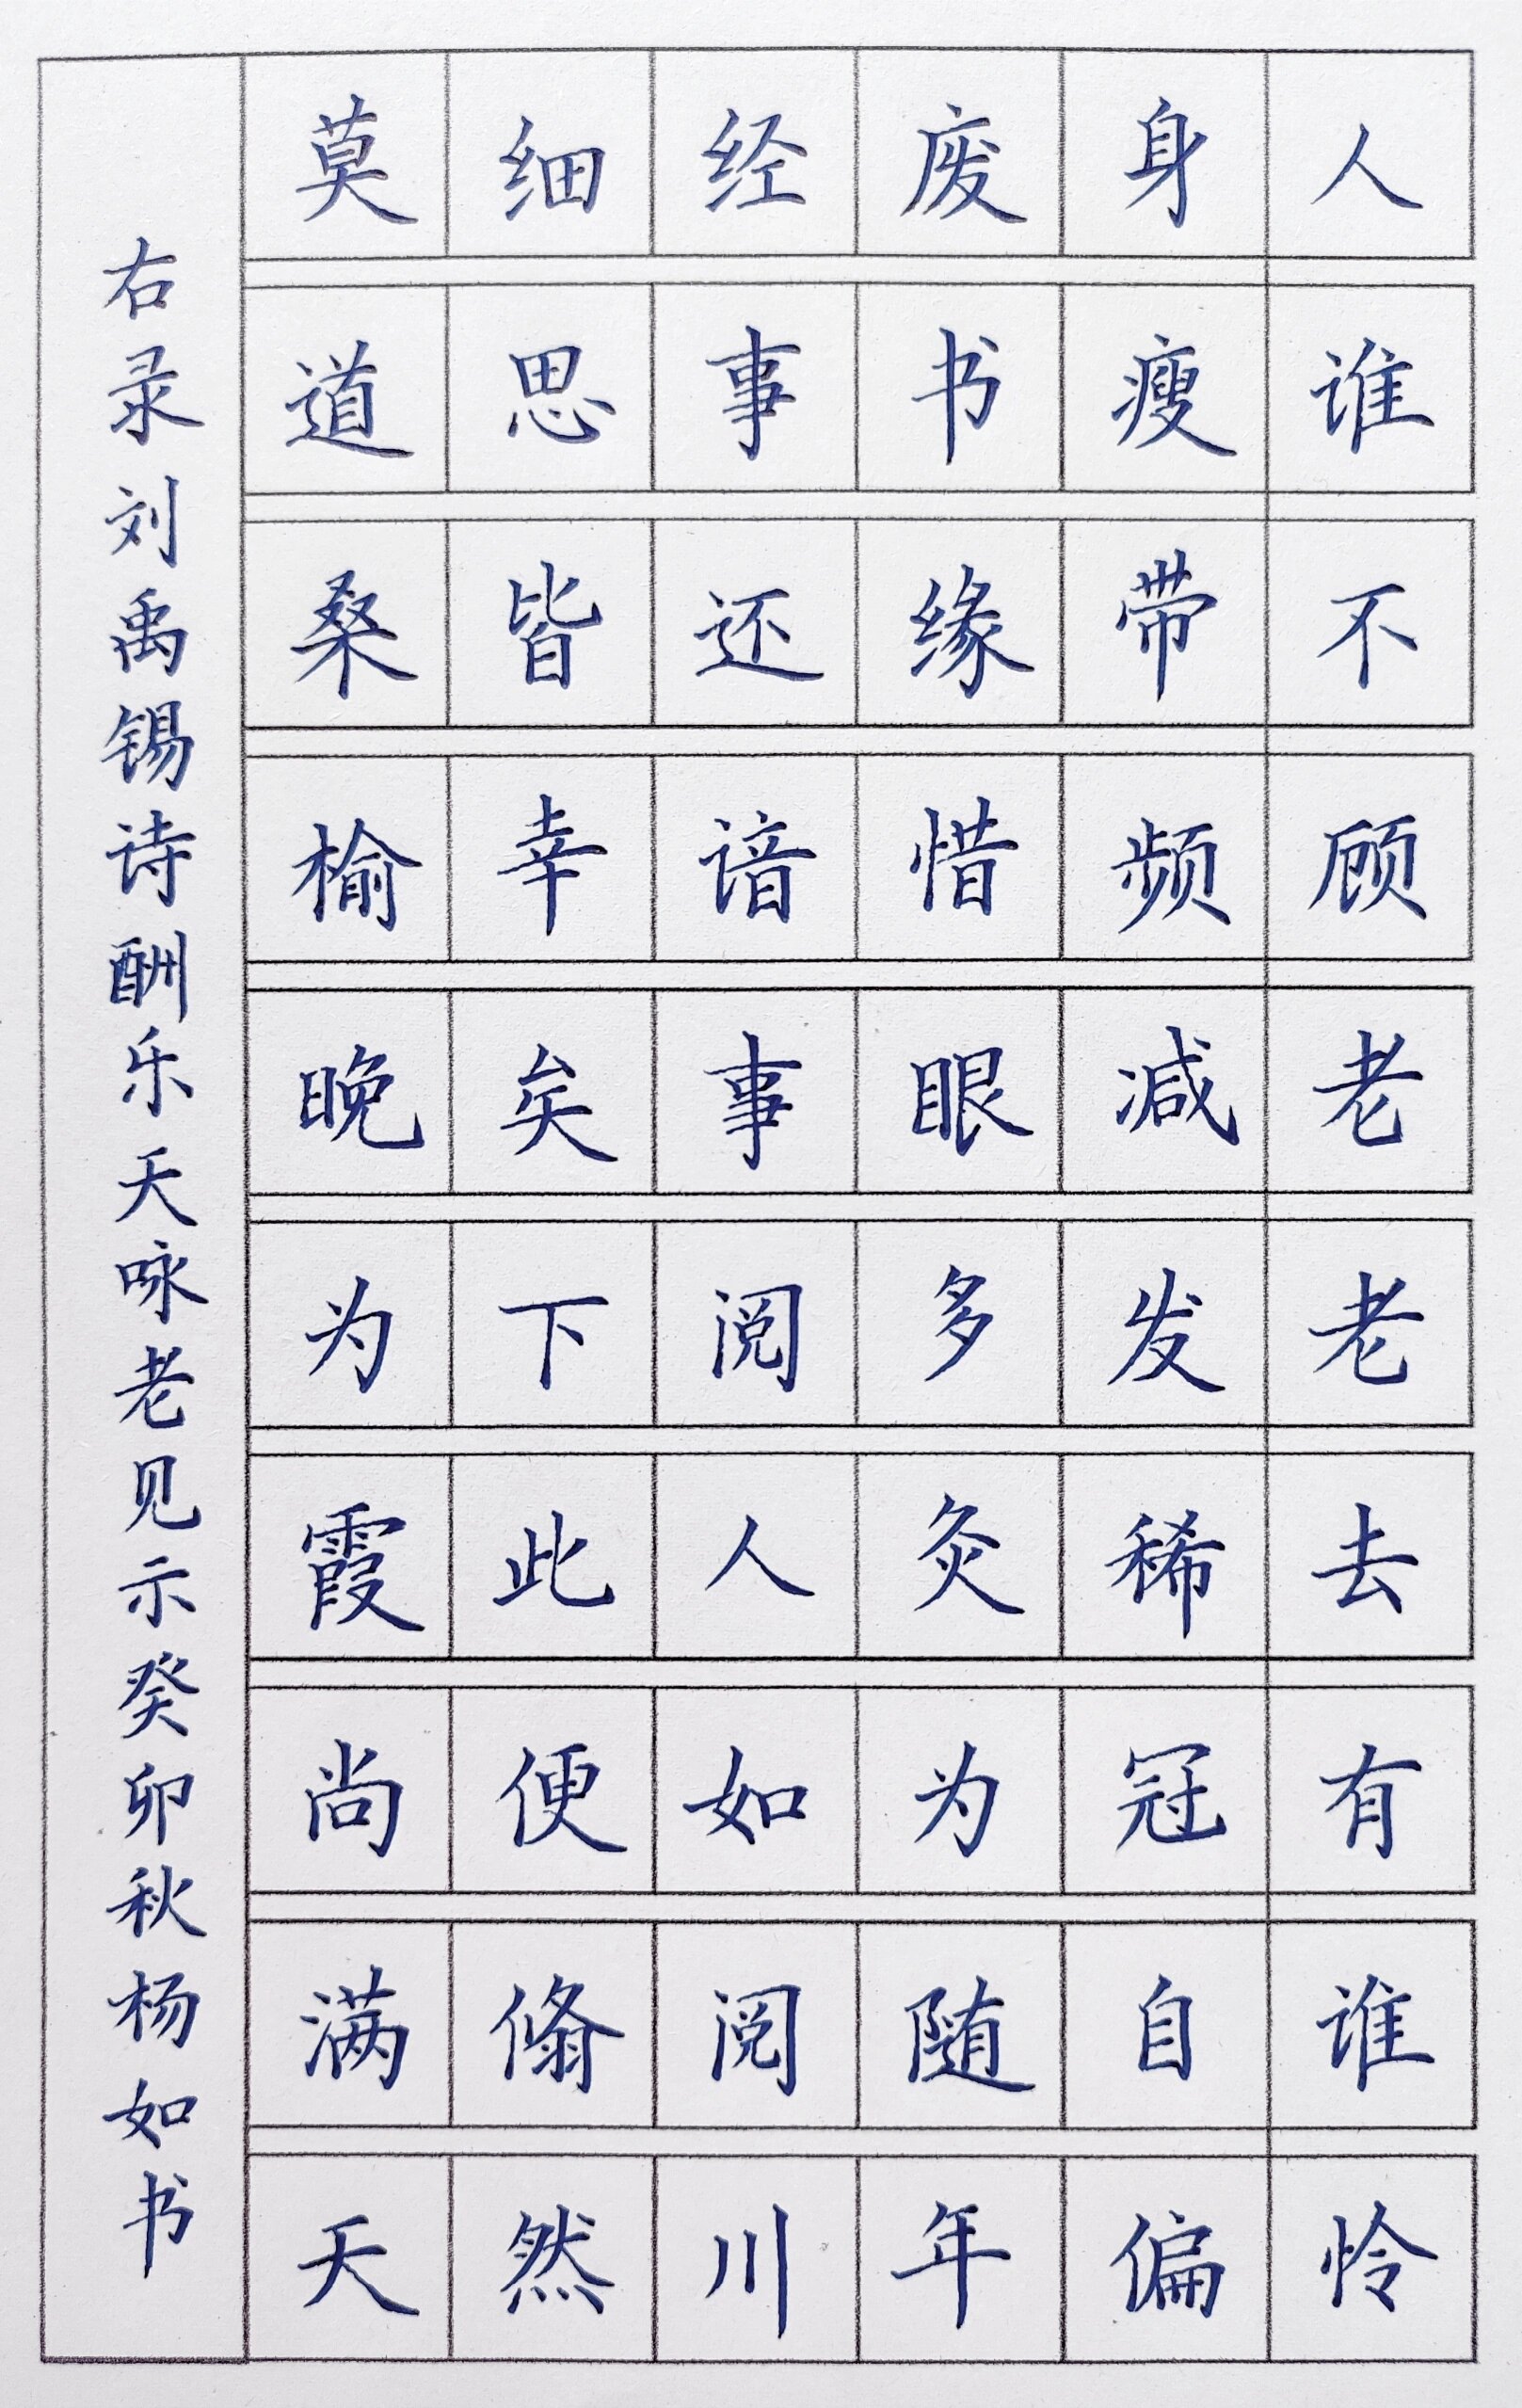 人谁不顾老老去有谁怜
身瘦带频减发稀冠自偏
废书缘惜眼多灸为随年
经事还谙事阅人如阅川
细思皆幸矣下此便翛然
莫道桑榆晚为霞尚满天
右录刘禹锡诗酬乐天咏老见示癸卯秋杨如书